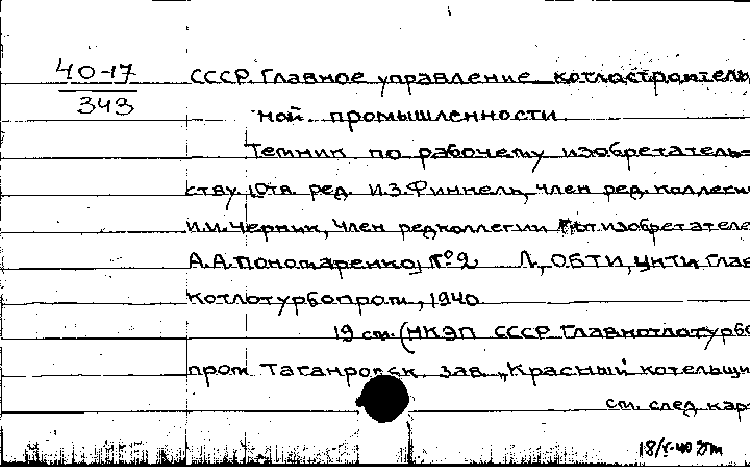 40-17
343
СССР. Главное управление котлостроитель
ной промышленности.
Темник по рабочему изобретатель-
ству. [Отв. ред. И.З.Финкель, член ред. коллеги
И.И.Черник, член редколлегии изобретате
А.А.Пономаренко] №2 Л., ОБТИ, ЦНТИ Глав
котлотурбопром, 1940.
19 см. (НКЭП СССР. Главкотлотурбо
пром Таганрогск. зав. „Красный котельщи
см. след. кар